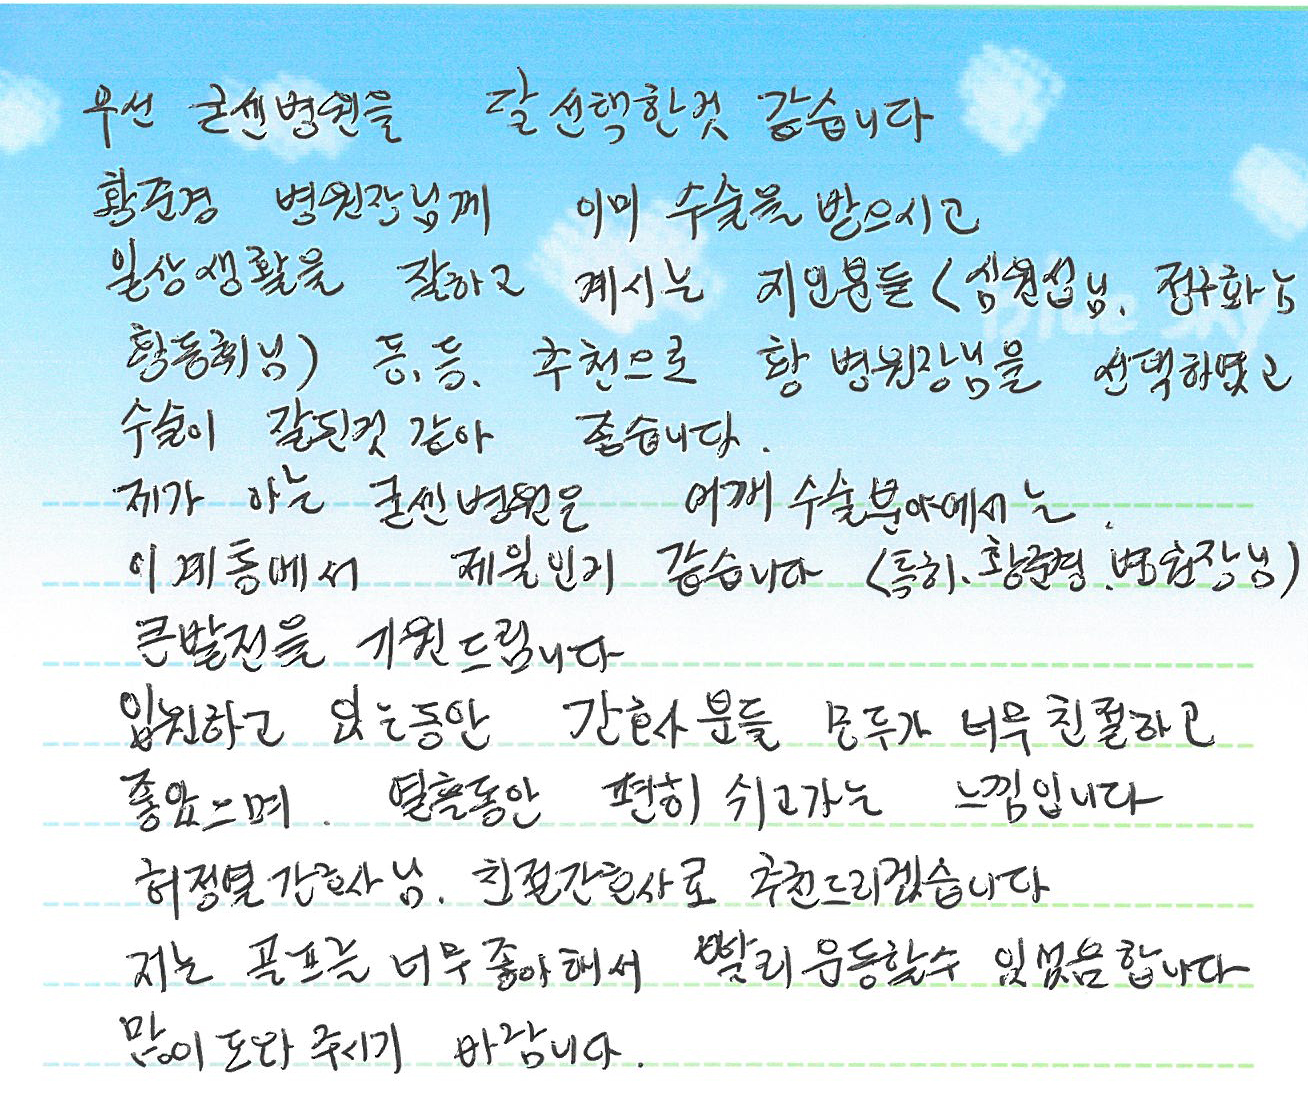 우선 굳센병원을 잘 선택한것 같습니다
황준경 병원장님께 이미 수술을 받으시고
일상생활을 잘하고 계시는 지인분들 (심원섭님, 정구화님
황동휘님) 등, 등. 추천으로 황 병원장님을 선택하였고
수술이 잘된것 같아 좋습니다.
제가 아는 굳센병원은 어깨 수술분야에서는
이 계통에서 제일인거 같습니다 (특히, 황준경 병원장님)
큰발전을 기원드립니다
입원하고 있는동안 간호사 분들 모두가 너무 친절하고
좋았으며. 열흘동안 편히 쉬고가는 느낌입니다
허정열간호사님. 친절간호사로 추천드리겠습니다
저는 골프를 너무 좋아해서 빨리 운동할수 있셨음합니다
많이 도와 주시기 바랍니다.